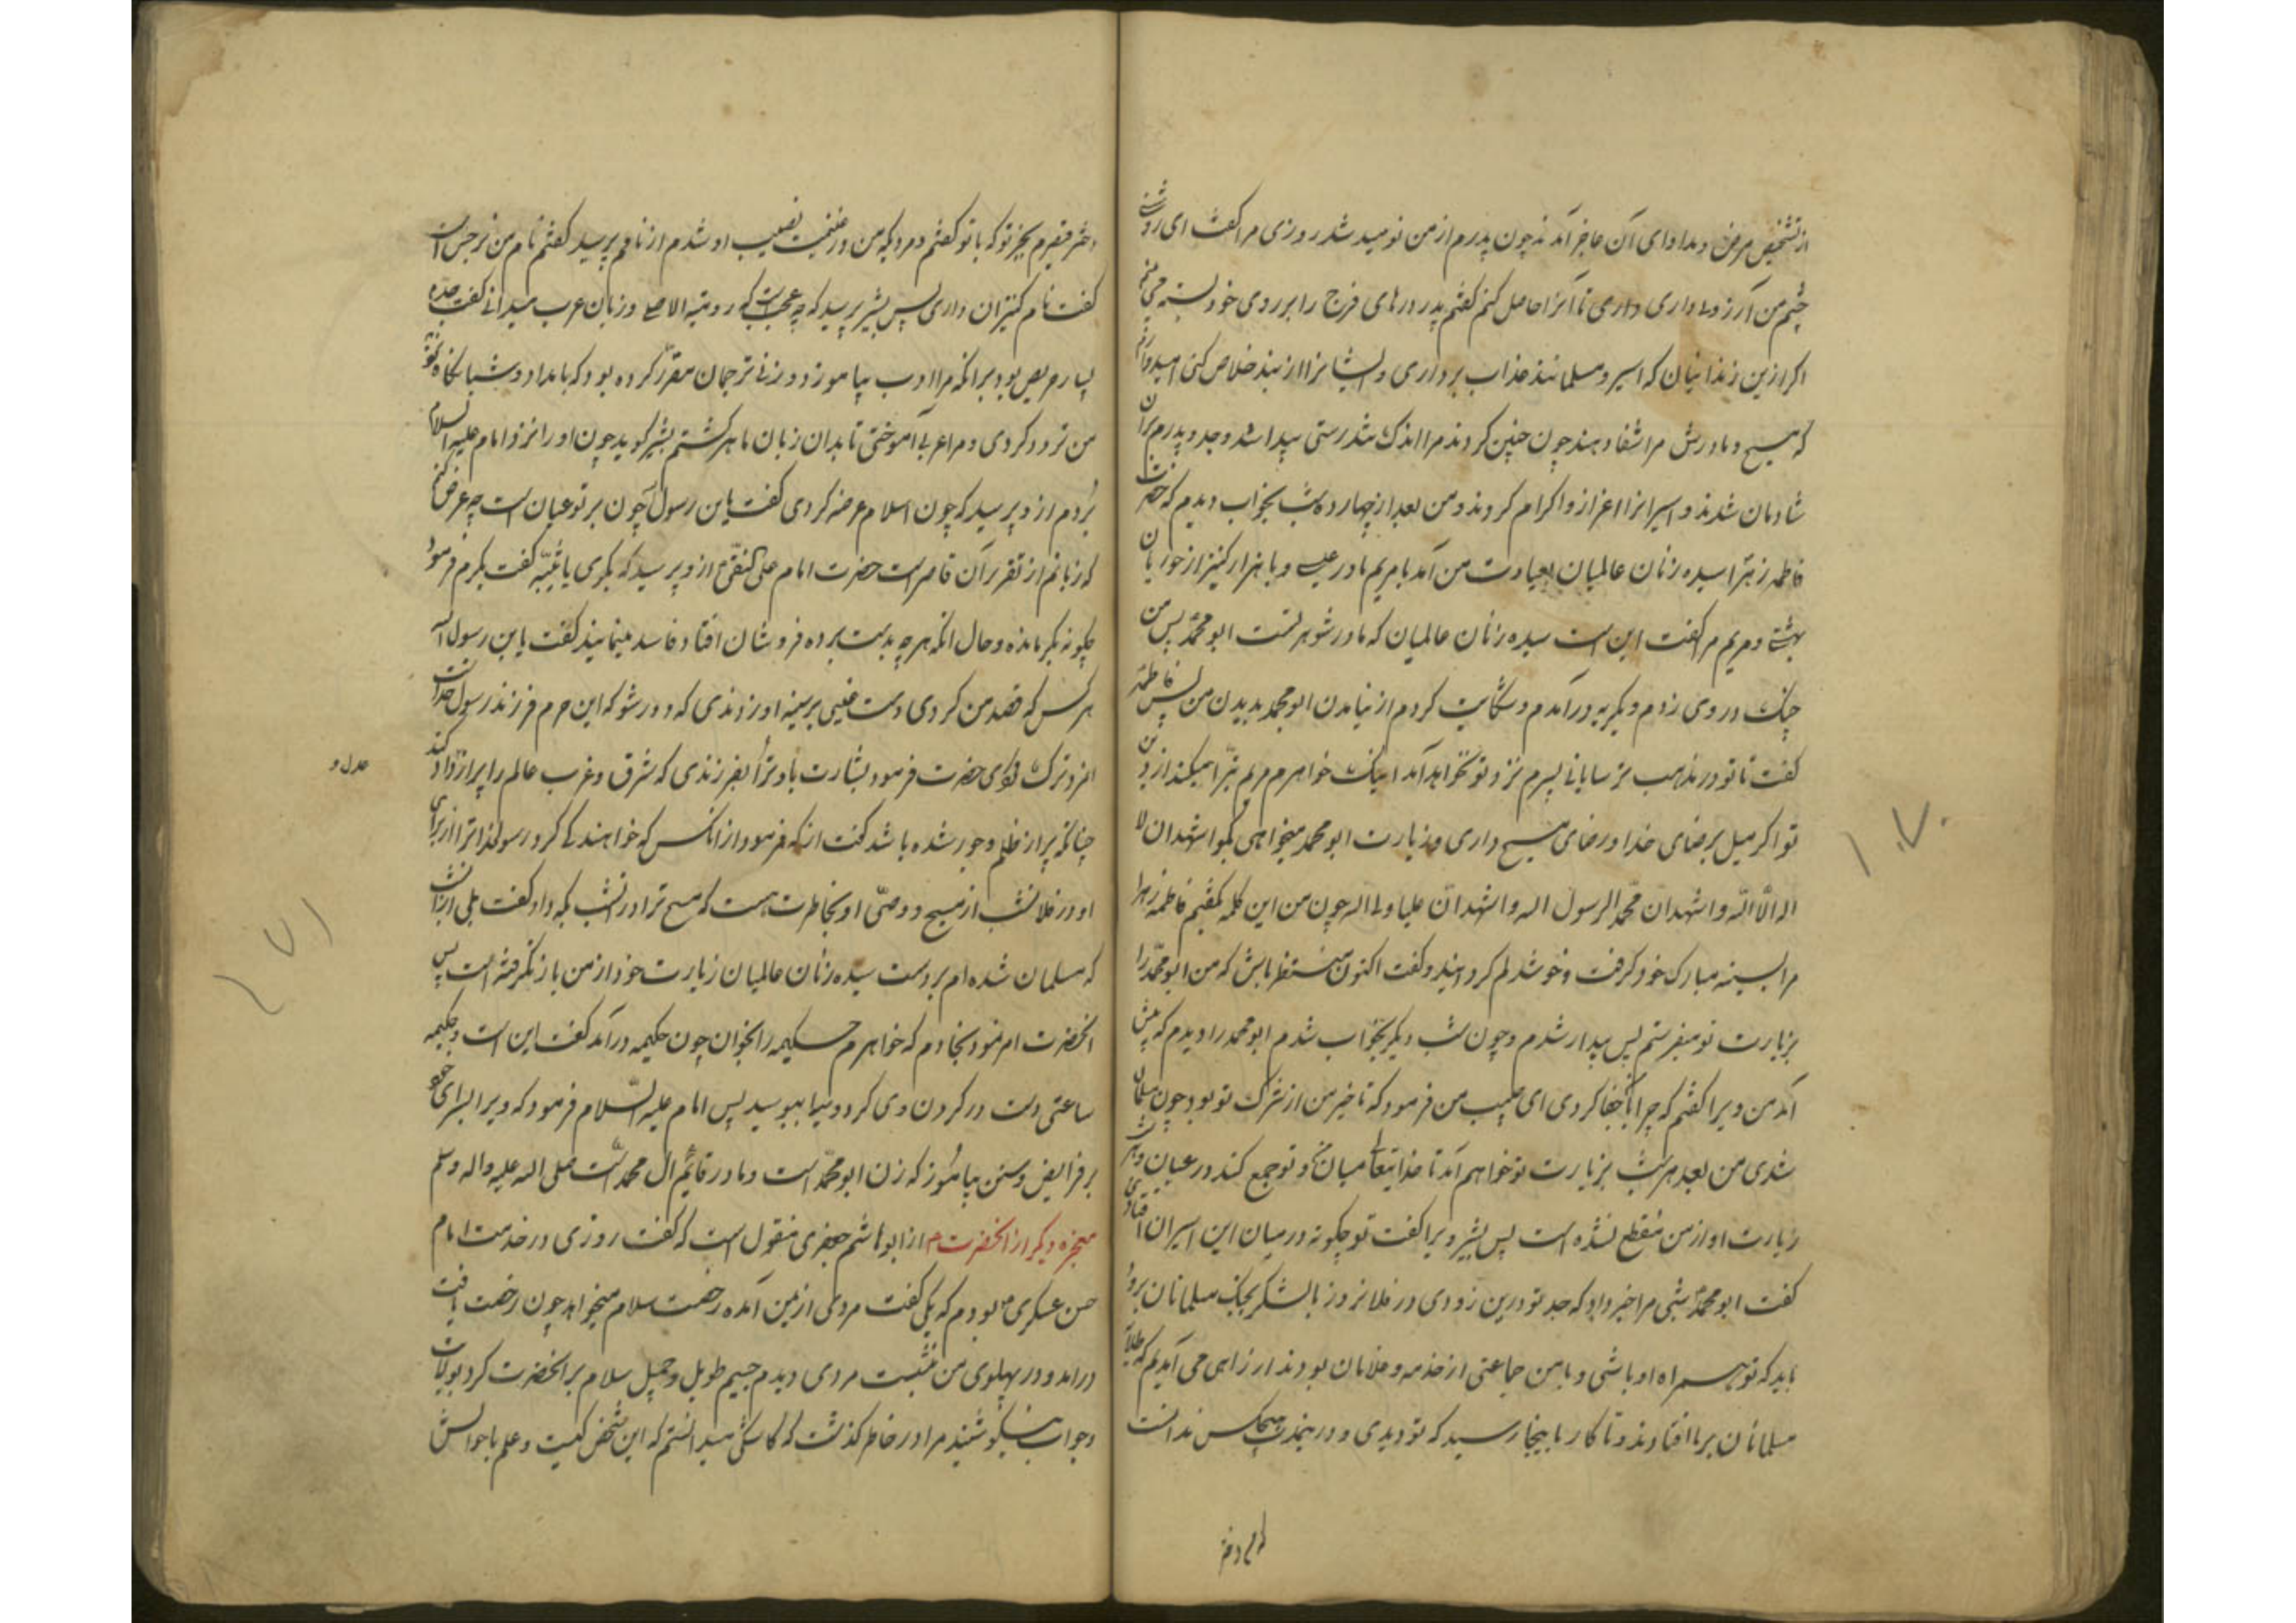 از تشخیص مرض و مداوای آن عاجز آمدند چون پدرم از من نومید شد روزی مرا گفت ای روشنی
چشم من آرزو داری تا آنرا حاصل کنم گفتم پدر درهای فرج را بر روی خود بسته می بینم
اگر ازین زندانیان که اسیر و مسلمانند عذاب برداری و ایشانرا از بند خلاص کنی امیدوارم
که مسیح و مادرش مرا شفا دهند چون چنین کردند مرا اندک تندرستی پیدا شد و جد و پدرم بران
شادمان شدند و اسیرانرا اعزاز و اکرام کردند و من بعد از چهارده شب بخواب دیدم که حضرت
فاطمه زهرا سیده زنان عالمیان بعیادت من آمد با مریم مادر عیسی و با هزار کنیز از حوریان
بهشتی و مریم مرا گفت این است سیده زنان عالمیان که مادر شوهر تست ابو محمد پس من
چنگ در وی زدم و بگریه درآمدم و شکایت کردم از نیامدن ابو محمد بدیدن من پس فاطمه
گفت تا تو در مذهب ترسایانی پسرم نزد تو نخواهد آمد اینک خواهرم مریم تبرا میکند از دین
تو اگر میل برضای خدا و رضای مسیح داری و زیارت ابو محمد میخواهی بگو اشهد ان لا
اله الا الله و اشهد ان محمدا رسول الله و اشهد ان علیا ولی الله چون من این کلمه گفتم فاطمه زهرا
مرا بسینه مبارک خود گرفت و خوشدلم گردانید و گفت اکنون منتظر باش که من ابو محمد را
بزیارت تو میفرستم پس بیدار شدم و چون شب دیگر بخواب شدم ابو محمد را دیدم که پیش
آمد من ویرا گفتم که چرا با ما جفا کردی ای حبیب من فرمود که تاخیر من از شرک تو بود چون مسلمان
شدی من بعد هر شب بزیارت تو خواهم آمد تا خدایتعالی میان من و تو جمع کند در عیان و
زیارت او از من منقطع نشده است پس بشیر ویرا گفت تو چگونه در میان این اسیران افتادی
گفت ابو محمد شبی مرا خبر داد که جد تو درین زودی در فلانروز با لشکر بجنگ مسلمانان برود
باید که تو همراه او باشی و با من جماعتی از خدمه و غلامان بودند از راهی می آمدیم که طلایه
مسلمانان بر ما افتادند و تا کار ما بینجا رسید که تو دیدی و درینمدت هیچکس ندانست
۱۷۰
دختر قیصرم بجز تو که با تو گفتم و مردیکه من در غنیمت نصیب او شدم از نامم پرسید گفتم نام من نرجس است
گفت نام کنیزان داری پس بشیر پرسید که چه عجبست که رومیة الاصلی و زبان عرب میدانی گفت جده
بسیار حریص بود برانکه مرا ادب بیاموزد و زنی ترجمان مقرر کرده بود که بامداد و شبانگاه
من تردد کردی و مرا عربی آموختی تا بدان زبان ماهر گشتم بشیر گوید چون او را نزد امام علیه السلام
بردم از و پرسید که چون اسلام عرضه کردی گفت یابن رسول چون بر تو عیان است چه عرض کنم
که زبانم از تقریر آن قاصر است حضرت امام علی النقی از و پرسید که بکری یا ثیبه گفت بکرم فرمود
چگونه بکر مانده و حال انکه هر چه بدست برده فروشان افتاد فاسد مینمایند گفت یابن رسول الله
هر کس که قصد من کردی دست غیبی بر سینه او زدندی که دور شو که این حرم فرزند رسول خداست
انمرد ترک کردی حضرت فرمود بشارت باد ترا بفرزندی که شرق و غرب عالم را پر از داد کند
عدل و
چنانکه پر از ظلم و جور شده باشد گفت از که فرمود از انکس که خواهندگی کرد رسولخدا ترا از برای
او در فلانشب از مسیح و وصی او بخاطرت هست که مسیح ترا در انشب بکه داد گفت بلی ازانشب
که مسلمان شده ام بر دست سیده زنان عالمیان زیارت خود از من باز نگرفته است پس
انحضرت امر نمود بخادم که خواهرم حکیمه را بخوان چون حکیمه درآمد گفت این است و حکیمه
ساعتی دست در گردن وی کرد و ویرا ببوسید پس امام علیه السلام فرمود که ویرا بسرای خود
بر فرایض و سنن بیاموز که زن ابو محمد است و مادر قائم آل محمد است صلی الله علیه و اله و سلم
معجزه دیگر از انحضرت از ابو هاشم جعفری منقول است که گفت روزی در خدمت امام
حسن عسکری بودم که یکی گفت مردی از یمن آمده رخصت سلام میخواهد چون رخصت یافت
درامد و در پهلوی من نشست مردی دیدم جسیم طویل و جمیل سلام بر انحضرت کرد بولایت
و جواب نیکو شنید مرا در خاطر گذشت که کاشکی میدانستم که این شخص کیست و علم باحوالش
۱۷۱